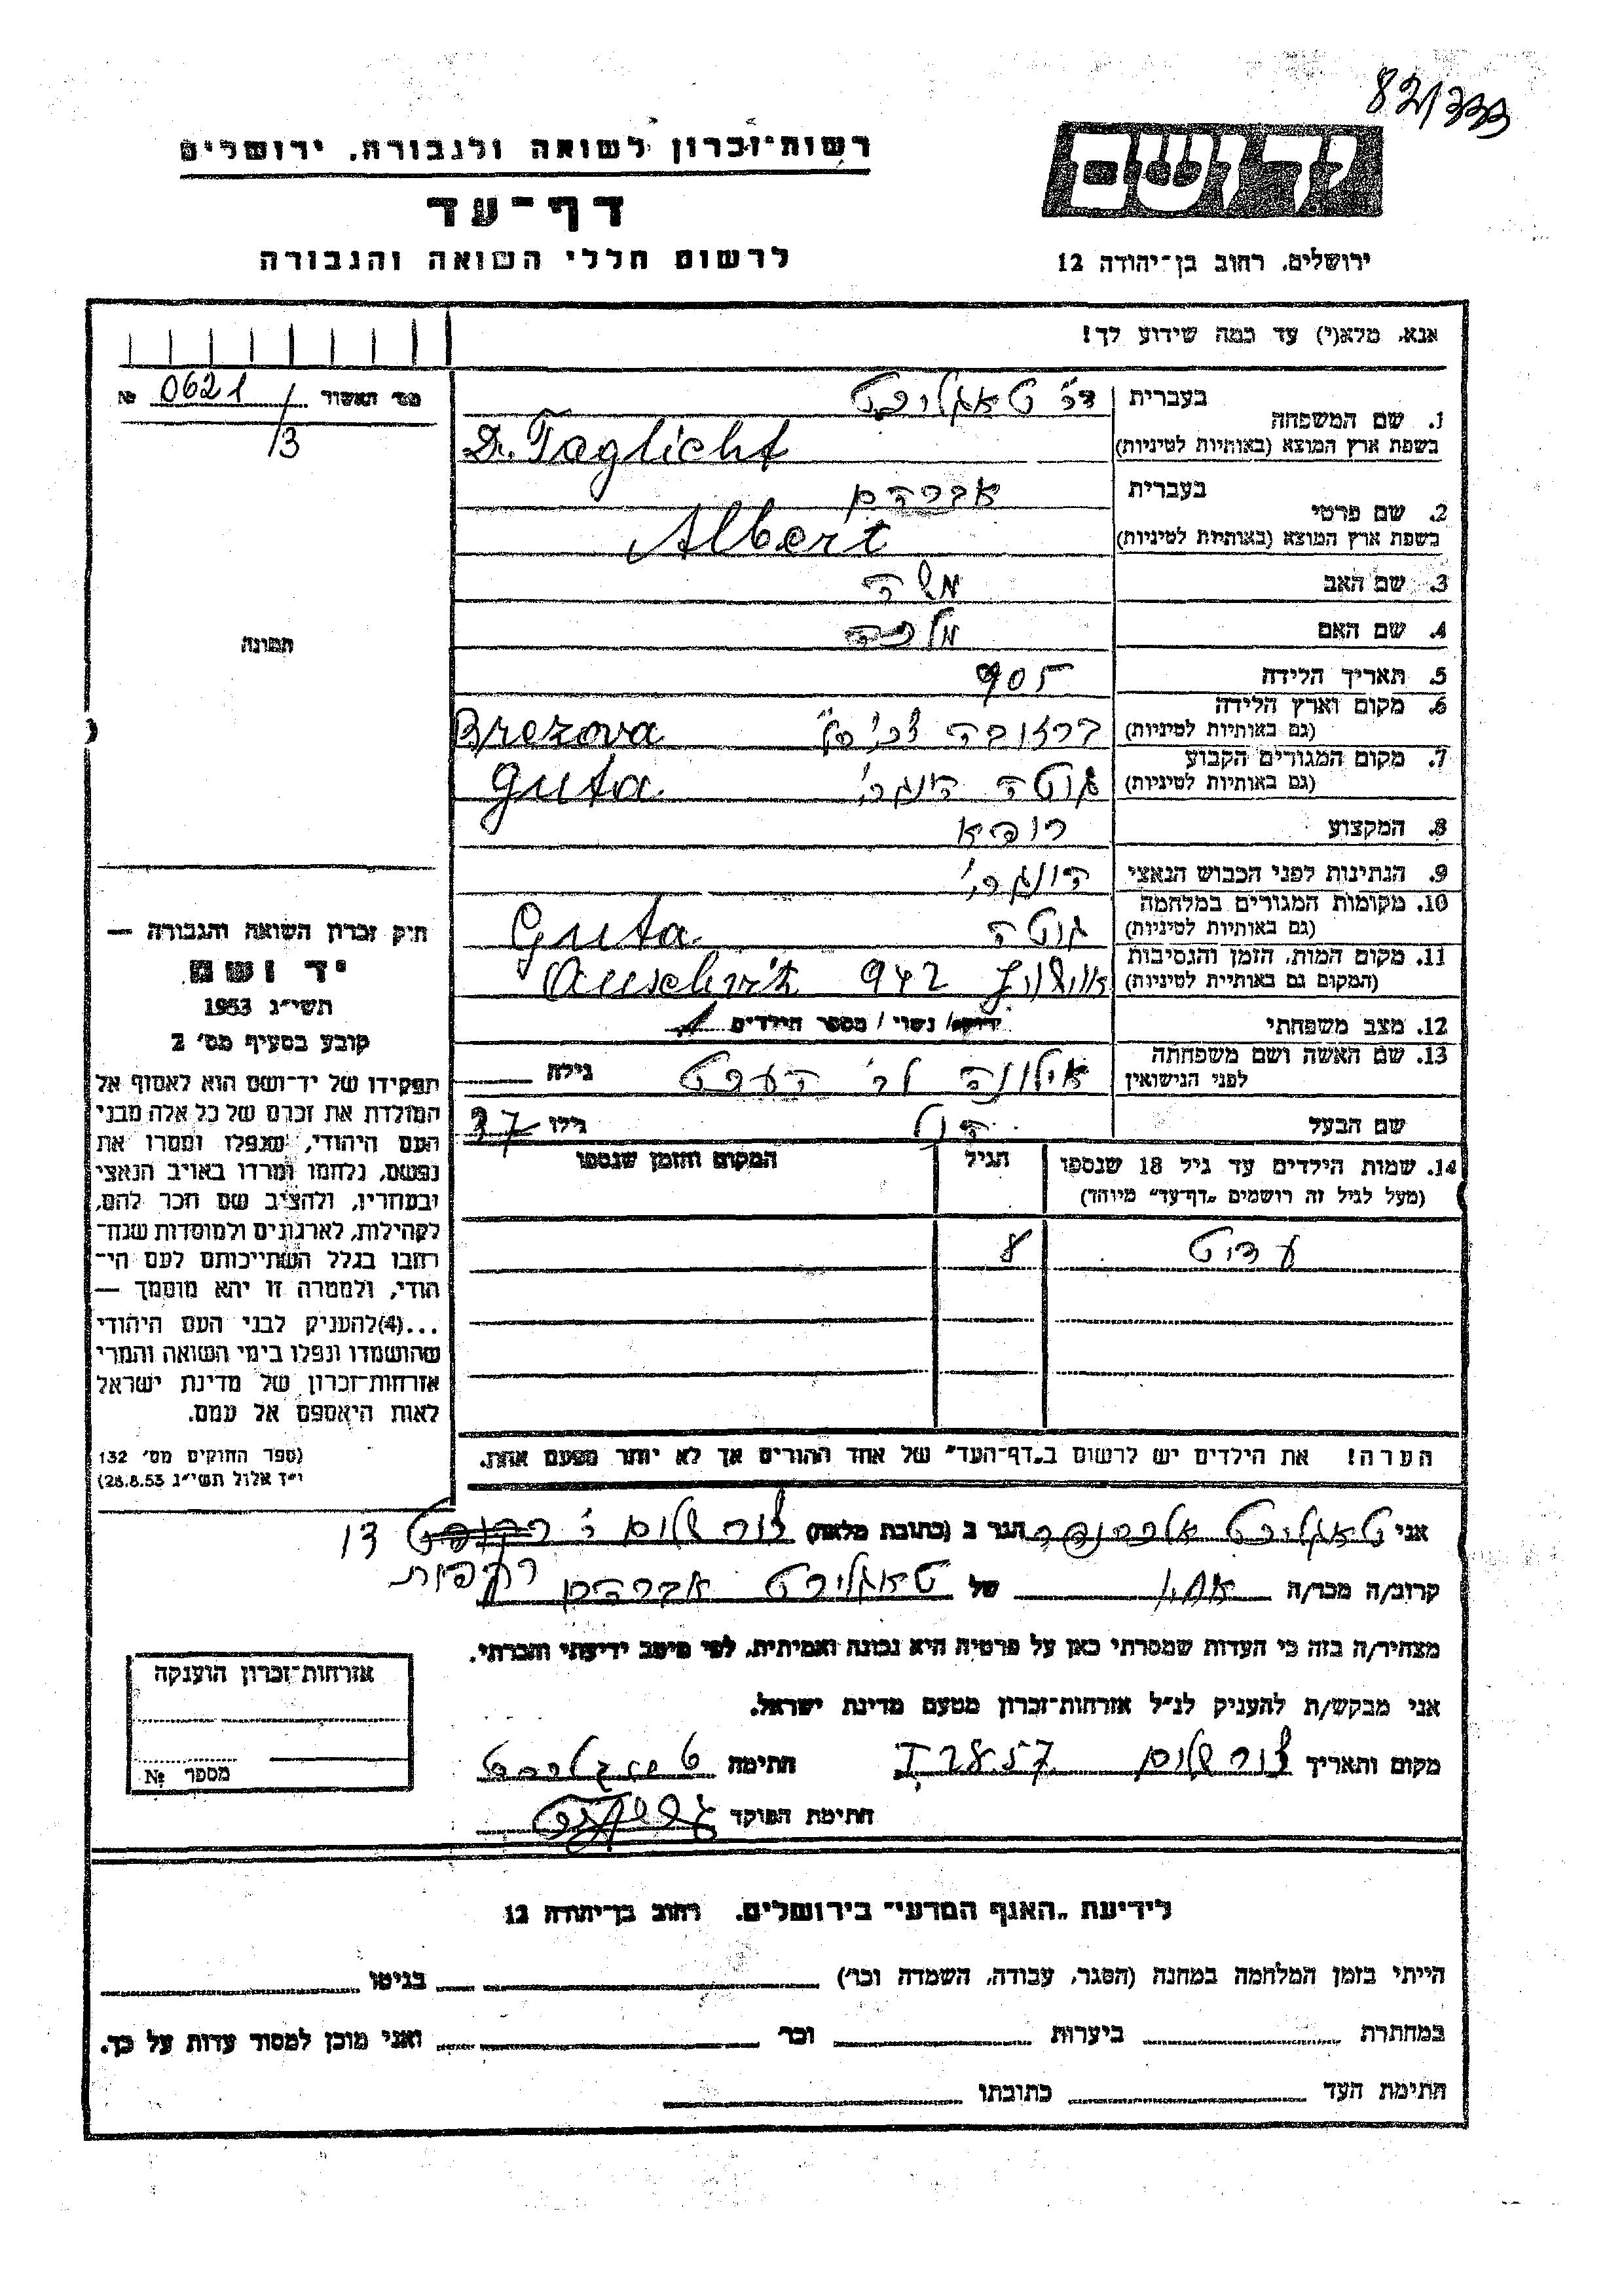 82/333
רשות־זכרון לשואה ולגבורה, ירושלים
דף־עד
לרשום חללי השואה והגבורה
יד ושם
ירושלים, רחוב בן־יהודה 12
אנא, מלא(י) עד כמה שידוע לך!
מס' האשור 0621 №
/3
1. שם המשפחה בעברית ד"ר טאגליכט
בשפת ארץ המוצא (באותיות לטיניות) Dr. Taglicht
2. שם פרטי בעברית אברהם
בשפת ארץ המוצא (באותיות לטיניות) Albert
3. שם האב משה
4. שם האם מלכה
5. תאריך הלידה 905
6. מקום וארץ הלידה (גם באותיות לטיניות) ברזובה צ'כי Brezova
7. מקום המגורים הקבוע (גם באותיות לטיניות) גוטה הונגרי' Guta
8. המקצוע רופא
9. הנתינות לפני הכבוש הנאצי הונגרי'
10. מקומות המגורים במלחמה (גם באותיות לטיניות) גוטה Guta
11. מקום המות, הזמן והנסיבות (המקום גם באותיות לטיניות) אושויץ 942 Auschvitz
12. מצב משפחתי רווק/ נשוי / מספר הילדים 1
13. שם האשה ושם משפחתה לפני הנישואין אילונה גילה
שם הבעל הנ"ל גילו 37
14. שמות הילדים עד גיל 18 שנספו הגיל המקום והזמן שנספו
(מעל לגיל זה רושמים „דף־עד" מיוחד)
עדיט 8
הערה! את הילדים יש לרשום ב„דף־העד" של אחד ההורים אך לא יותר מפעם אחת.
תמונה
חוק זכרון השואה והגבורה —
יד ושם
תשי"ג 1953
קובע בסעיף מס' 2
תפקידו של יד־ושם הוא לאסוף אל
המולדת את זכרם של כל אלה מבני
העם היהודי, שנפלו ומסרו את
נפשם, נלחמו ומרדו באויב הנאצי
ובעוזריו, ולהציב שם וזכר להם,
לקהילות, לארגונים ולמוסדות שנח־
רבו בגלל השתייכותם לעם הי־
הודי, ולמטרה זו יהא מוסמך —
...(4)להעניק לבני העם היהודי
שהושמדו ונפלו בימי השואה והמרי
אזרחות־זכרון של מדינת ישראל
לאות היאספם אל עמם.
(ספר החוקים מס' 132
י"ז אלול תשי"ג 28.8.53)
אני טאגליכט אלכסנדר הגר ב (כתובת מלאה) צור שלום 13
קרוב/ה מכר/ה אחי של טאגליכט אברהם
מצהיר/ה בזה כי העדות שמסרתי כאן על פרטיה היא נכונה ואמיתית, לפי מיטב ידיעתי והכרתי.
אני מבקש/ת להעניק לנ"ל אזרחות־זכרון מטעם מדינת ישראל.
מקום ותאריך צור שלום 28.57. I חתימה טאגליכט
חתימת הפוקד
אזרחות־זכרון הוענקה
מספר №
לידיעת „האגף המדעי" בירושלים, רחוב בן־יהודה 12
הייתי בזמן המלחמה במחנה (הסגר, עבודה, השמדה וכו') בגיטו
במחתרת ביערות וכו' ואני מוכן למסור עדות על כך.
חתימת העד כתובתו